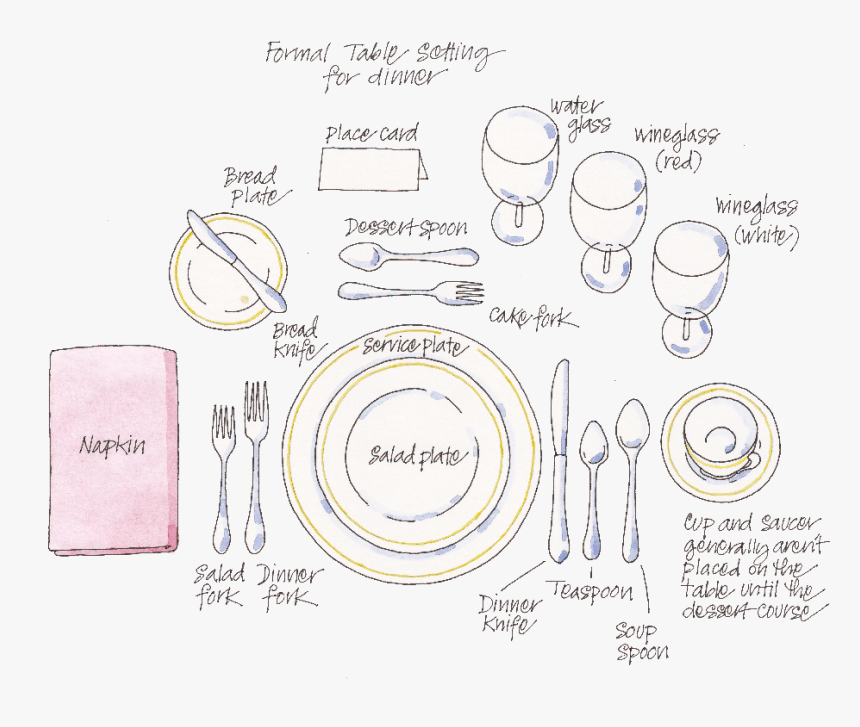 Formal Table Setting
for dinner
water
glass
place card
wineglass
(red)
Bread
plate
wineglass
(white)
Dessert spoon
cake fork
Bread
knife
service plate
Napkin
Salad plate
Cup and saucer
generally aren't
placed on the
table until the
dessert course
Salad
fork
Dinner
fork
Teaspoon
Dinner
knife
Soup
spoon